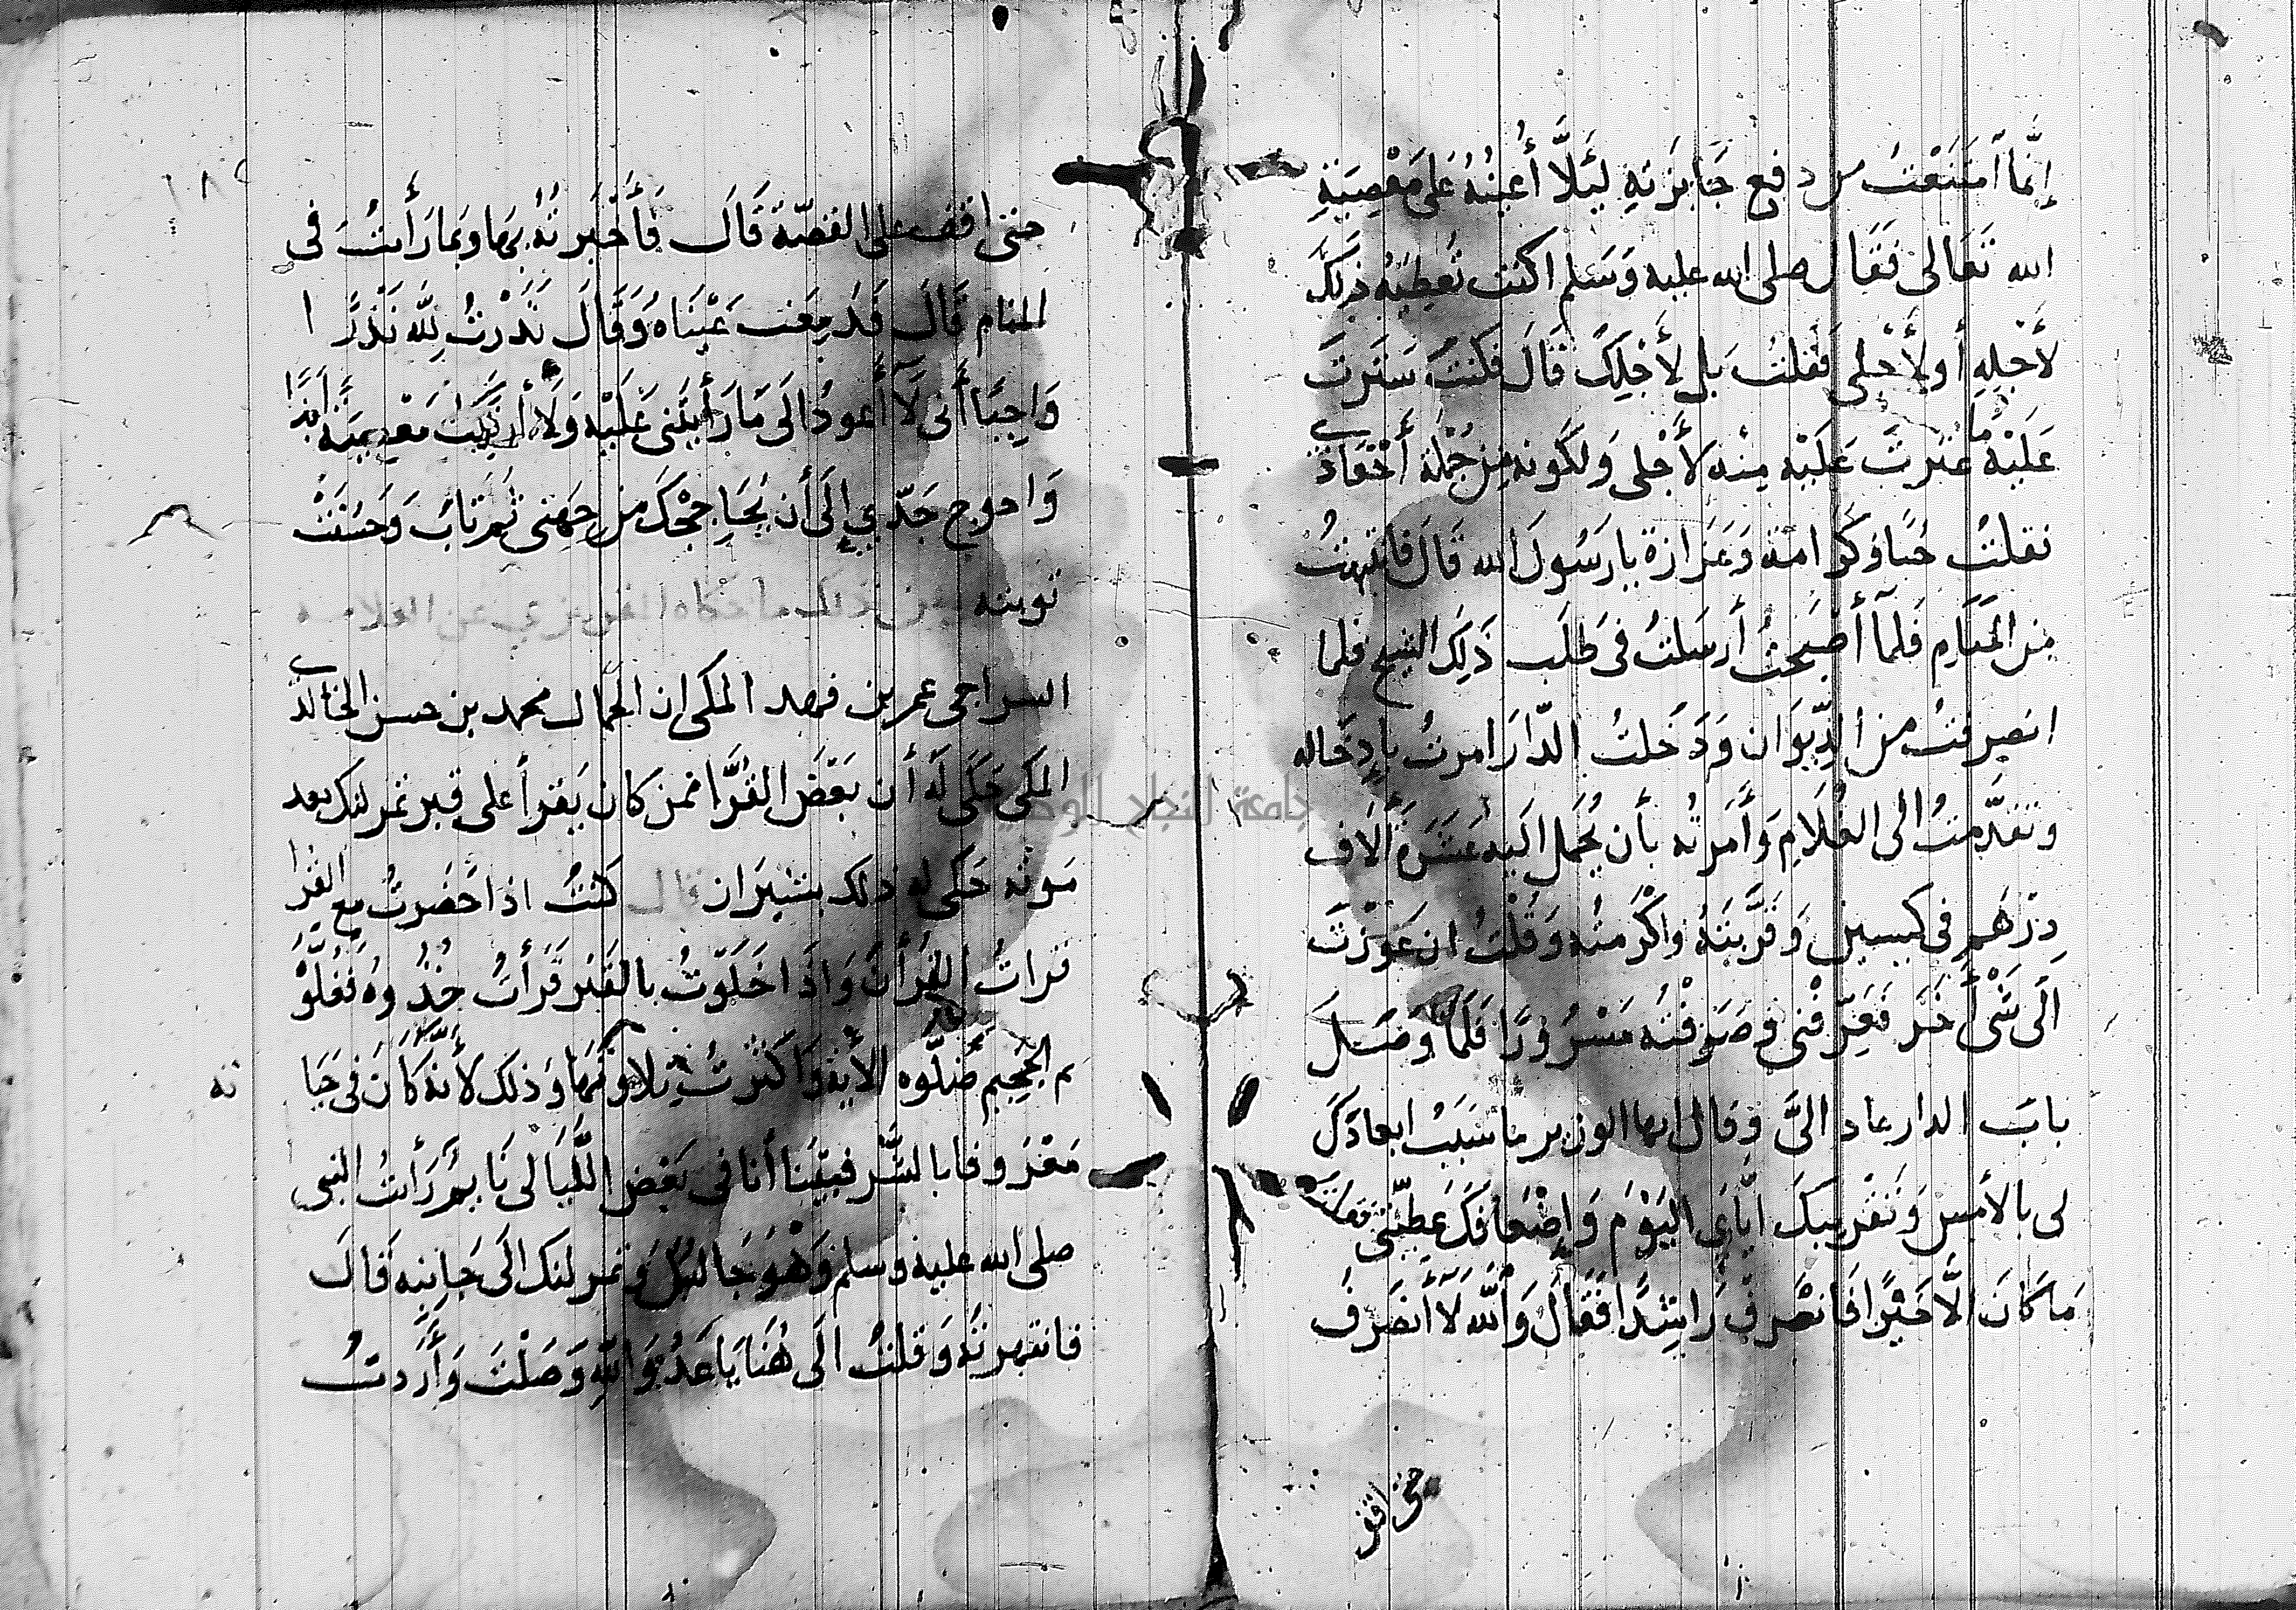 إنَّما اَمتَنَعْتُ من دفع جَابِزَتِهِ لِئَلَّا أُعِينُهُ عَلى مَعْصِيَةِ
الله تَعَالى فَقَال صلى الله عليه وَسَلم اكنت تُعطِيْهُ ذلِكَ
لأجْلِهِ أولأَجْلى فَقلتُ بَل لأَجْلِكَ قَالَ فكنتَ سَتَرتَ
عَليْهِ مَا عَثَرتَ عَلَيْه مِنْه لأجْلى وَلكَونه مِن جُمْلَة أحْفَادى
فقلتُ حُبًا وَكَرَامَة وَعَزازة يارَسُولَ الله قَالَ فانتبهتُ
مِن المَنَامِ فَلَمَّا أَصْبَحتُ أرسَلتُ فى طَلَب ذَلِكَ الشيخ فلما
انصرفتُ من الدِّيوَان وَدَخلتُ الدَّارَ امرتُ بإدخَاله
وتقدَّمتُ الى الغُلَامِ وَأَمَرتُه بأن يُحْمَل اليه عَشَرَة ألاف
دِرْهَم فى كيسين وَقَرَّبتَهُ واكْرَمتُه وَقُلْتُ ان عَوَزْتَ
الَى شْىٍ أَخَر فَعَرِّفْنى وَصَرَفْتُه مَسْرُورًا فَلَمَّا وَصَلَ
بابَ الدار عاد الىَّ وقال ايها الوزير ما سَبَبُ ابعادكَ
لى بالأمس وَتَقْريبكَ ايَّاىَ اليَوْمَ وَإضْعَافكَ عَطِيَّتى فقلتُ
مَا كَانَ الَّا خَيْرًا فَانصَرِفْ رَاشِدًا فَقَالَ وَاللّهِ لَا أَنصَرفُ
حتى اقف
١٨٩
حتى اقف على القصّة قَالَ فَأَخْبَرتُهُ بِهَا وَبِمَا رَأَيتُ فى
المنام قَالَ فَدَمِعَت عَيْنَاهُ وَقَالَ نَذَرْتُ لِلّه نَذْرًا
وَاجِبًا أَنى لَا أَعودُ الَى مَا رَأَيتَنى عَلَيْه وَلَا أرتَكِبُ مَعْصِيَةً أبدًا
وَاحوج جَدّي إلَى أن يُحَاجِجكَ مِن جِهَتى ثُم تَابَ وَحَسُنَتْ
توبته
السراجى عمر بن فهد المكى ان الجمال محمد بن حسن الخالدى
المكى حَكَى لَه أن بَعْضَ القُرَّا ممن كان يَقرأ على قبر تمرلنك بعد
مَوته حَكى له ذلك بشيراز قال كنتُ اذا حَضَرتُ مع القُرا
قرأتُ القُرأنَ وَاذَا خَلَوتُ بالقَبْر قَرَأتُ خُذُوهُ فَغُلّوْ
ثم الجَحِيم صَلّوه الأية وَاكثرتُ تِلاوَتَهَا وَذلك لأنَّهُ كَانَ فى حَيَا
ته
مَعْرُوفا بالشَّر فبيْنَا أنا فى بَعْض اللَّيَالى نَايم رَأَيتُ النبى
صلى الله عليه وسلم وَهْوَ جَالسٌ وَتمرلنك الَى جَانِبه قَالَ
فانتهرتَه وَقلتُ الَى هُنَا يَا عَدُوَّ اللّهِ وَصَلْتَ وَأَرَدتُ